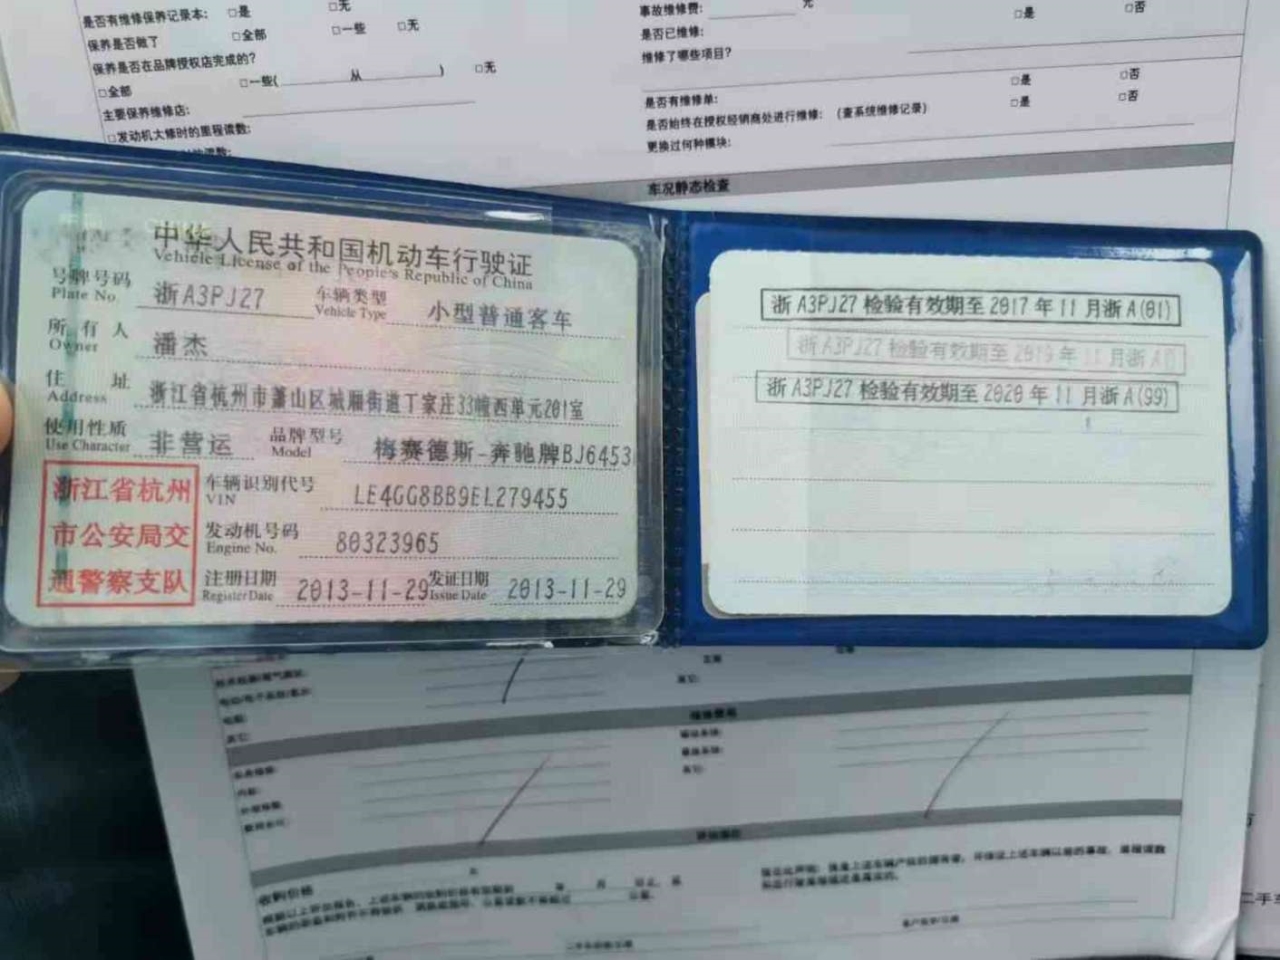 是否有维修保养记录本: □是 □无
保养是否做了 □全部 □一些 □无
保养是否在品牌授权店完成的?
□全部 □一些( 从 ) □无
主要保养维修店:
□发动机大修时的里程读数:
事故维修费: 元
是否已维修: □是 □否
维修了哪些项目?
是否有维修单: □是 □否
是否始终在授权经销商处进行维修: (查系统维修记录) □是 □否
更换过何种模块:
车况静态检查
中华人民共和国机动车行驶证
Vehicle License of the People's Republic of China
号牌号码 浙A3PJ27 车辆类型 小型普通客车
Plate No. Vehicle Type
所有人 潘杰
Owner
住址 浙江省杭州市萧山区城厢街道丁家庄33幢西单元201室
Address
使用性质 非营运 品牌型号 梅赛德斯-奔驰牌BJ6453
Use Character Model
浙江省杭州
市公安局交
通警察支队
车辆识别代号 LE4GG8BB9EL279455
VIN
发动机号码 80323965
Engine No.
注册日期 2013-11-29 发证日期 2013-11-29
Register Date Issue Date
浙A3PJ27检验有效期至2017年11月浙A(01)
浙A3PJ27检验有效期至2019年11月浙A
浙A3PJ27检验有效期至2020年11月浙A(99)
其它:
其它:
收购价格
二手车